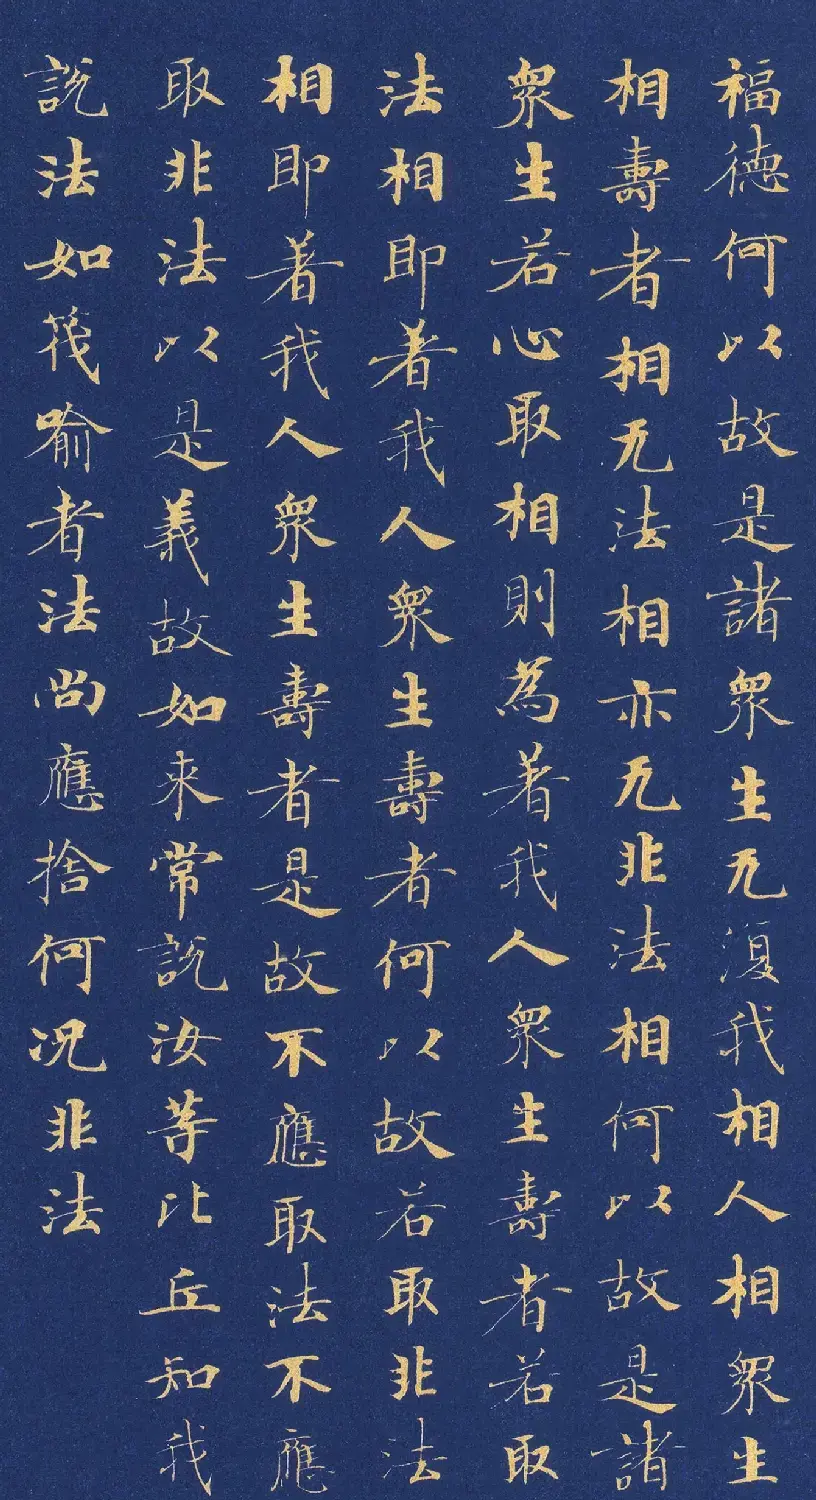 福德何以故是諸眾生无復我相人相眾生
相壽者相无法相亦无非法相何以故是諸
眾生若心取相則為著我人眾生壽者若取
法相即著我人眾生壽者何以故若取非法
相即著我人眾生壽者是故不應取法不應
取非法以是義故如来常說汝等比丘知我
說法如筏喻者法尚應捨何況非法